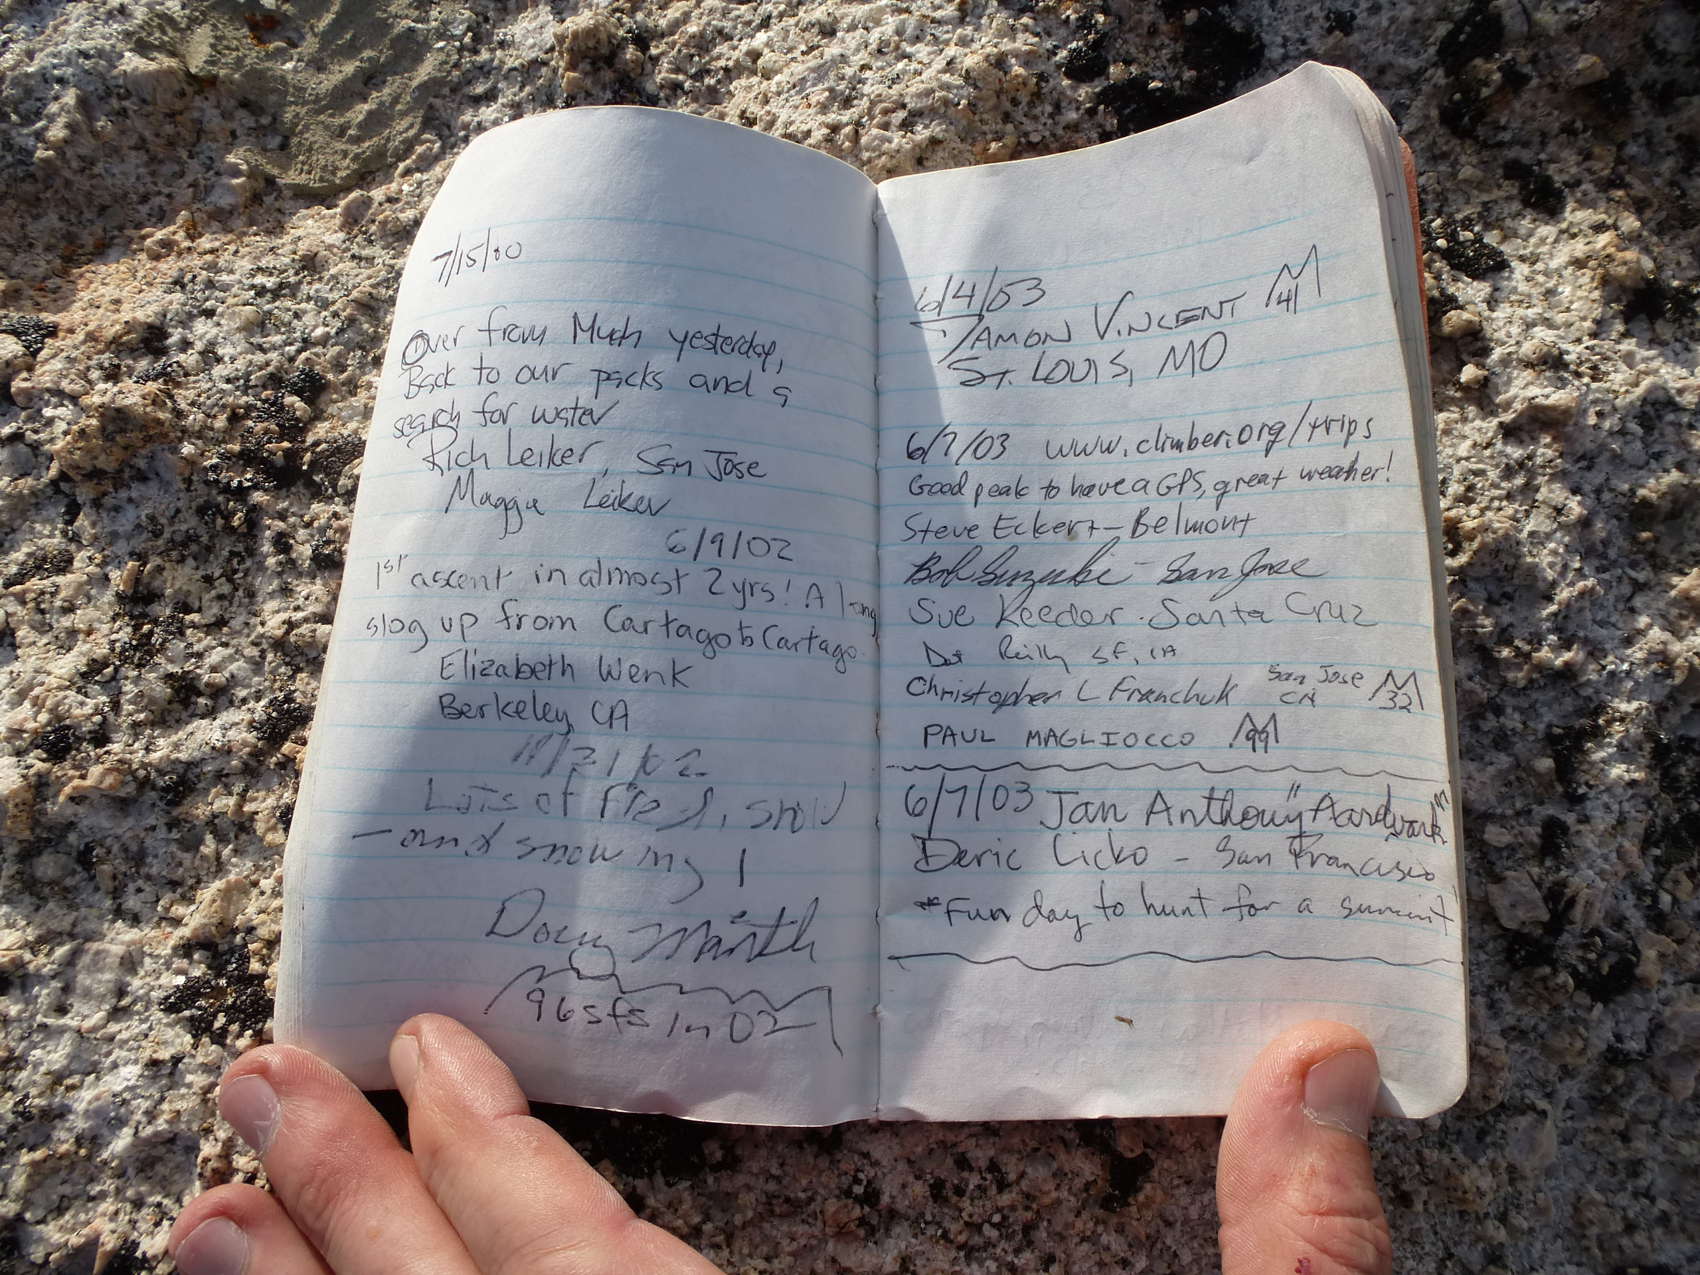 7/15/00
Over from Muah yesterday,
Back to our packs and a
search for water
Rich Leiker, San Jose
Maggie Leiker
6/9/02
1st ascent in almost 2 yrs! A long
slog up from Cartago to Cartago.
Elizabeth Wenk
Berkeley CA
/31/02
Lots of
and snowing!
Doug Mantle
96 sfs in 02
6/4/03
DAMON VINCENT 41
ST. LOUIS, MO
6/7/03 www.climber.org/trips
Good peak to have a GPS, great weather!
Steve Eckert - Belmont
Bob Suzuki - San Jose
Sue Leeder - Santa Cruz
Reilly SF, CA
Christopher L Franchuk San Jose CA 32
PAUL MAGLIOCCO 99
6/7/03 Jan Anthony "Aardvark"
Deric Licko - San Francisco
*Fun day to hunt for a summit